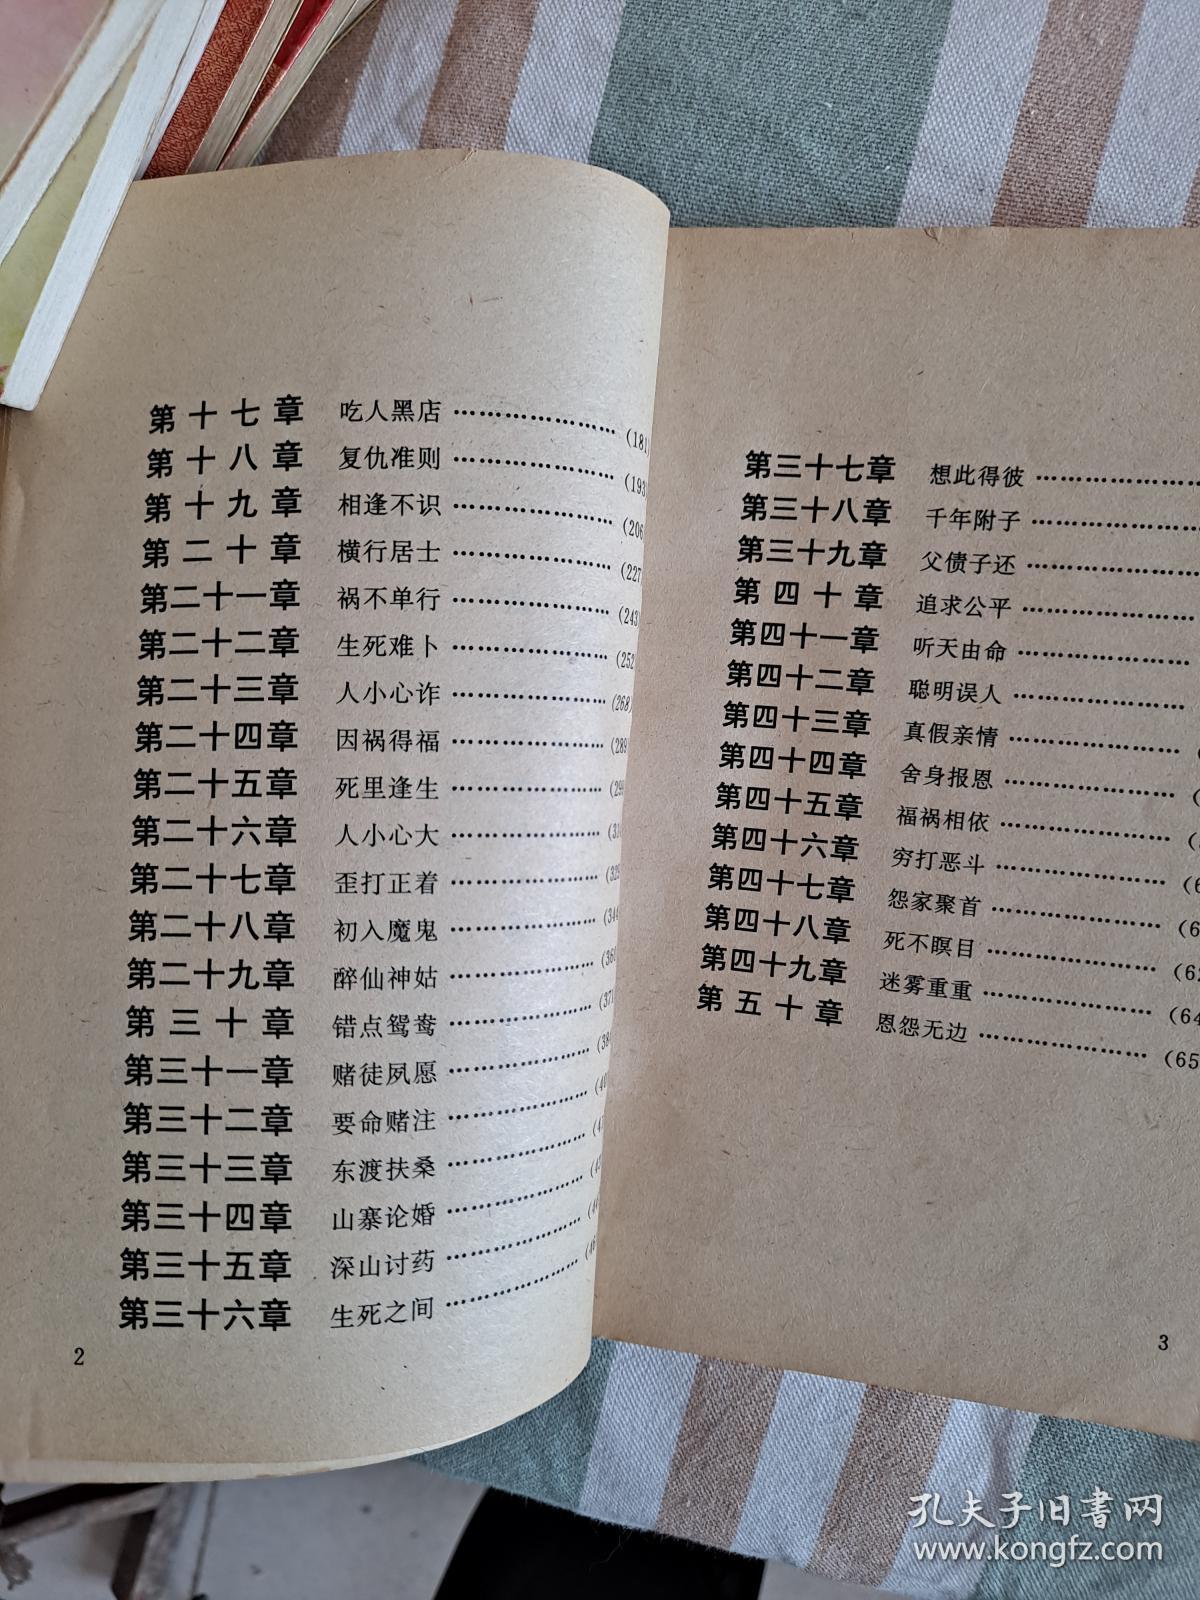 第十七章 吃人黑店 ………………… (181)
第十八章 复仇准则 ………………… (193
第十九章 相逢不识 ………………… (206
第二十章 横行居士 ………………… (227
第二十一章 祸不单行 ………………… (243)
第二十二章 生死难卜 ………………… (252
第二十三章 人小心诈 ………………… (268)
第二十四章 因祸得福 ………………… (289
第二十五章 死里逢生 ………………… (29
第二十六章 人小心大 ………………… (31
第二十七章 歪打正着 ………………… (329
第二十八章 初入魔鬼 ………………… (344
第二十九章 醉仙神姑 ………………… (360
第三十章 错点鸳鸯 ………………… (371
第三十一章 赌徒凤愿 ………………… (38
第三十二章 要命赌注 ………………… (40
第三十三章 东渡扶桑 ………………… (4
第三十四章 山寨论婚 ………………… (4
第三十五章 深山讨药 ………………… (4
第三十六章 生死之间 ………………… (46
2
第三十七章 想此得彼 …………………
第三十八章 千年附子 …………………
第三十九章 父债子还 …………………
第四十章 追求公平 …………………
第四十一章 听天由命 …………………
第四十二章 聪明误人 …………………
第四十三章 真假亲情 …………………
第四十四章 舍身报恩 …………………
第四十五章 福祸相依 …………………
第四十六章 穷打恶斗 ………………… (6
第四十七章 怨家聚首 ………………… (6
第四十八章 死不瞑目 ………………… (62
第四十九章 迷雾重重 ………………… (64
第五十章 恩怨无边 ………………… (65
3
孔夫子旧书网
www.kongfz.com